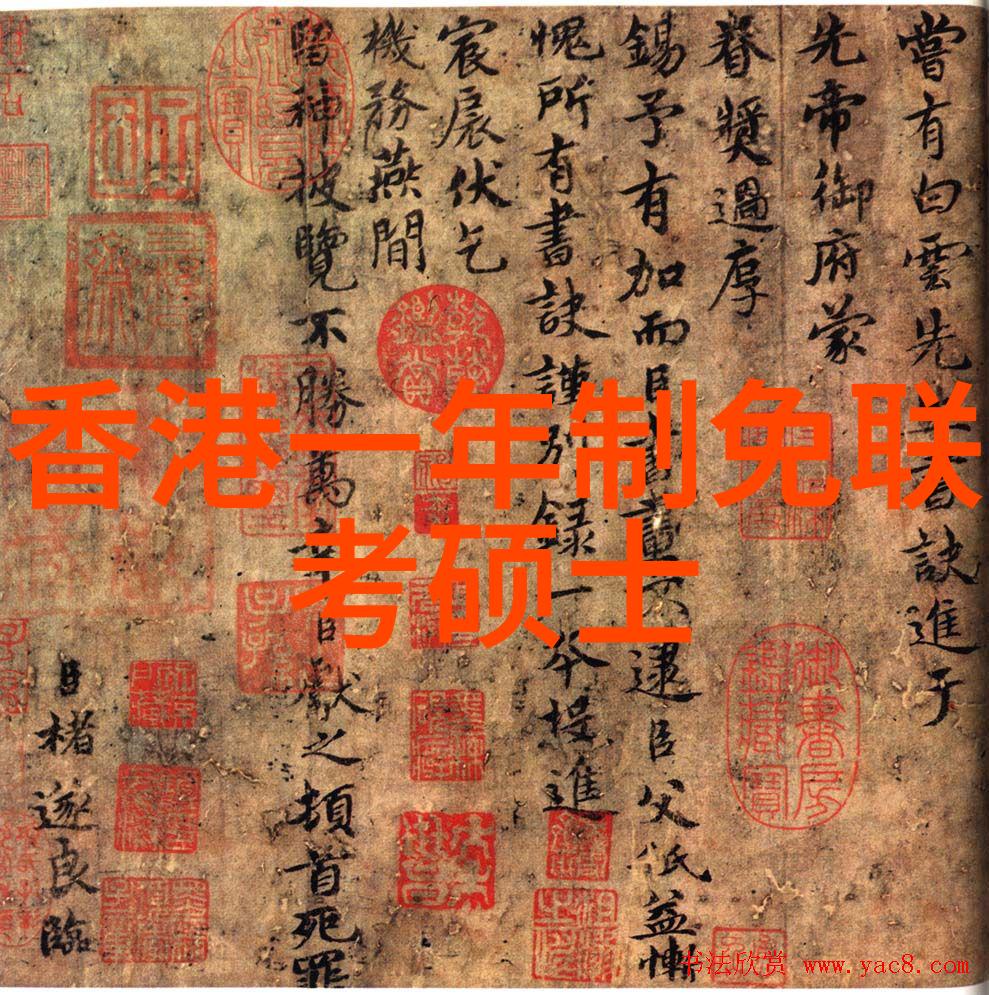 香港一年制免联
考硕士
嘗有白雲先生書訣進于
先帝御府蒙
眷奬過厚
錫予有加而臣書畫不逮臣父祇益慚
愧所有書訣謹別錄一本投進
宸扆伏乞
機務燕間
留神披覽不勝萬幸臣獻之頓首死罪
臣褚遂良臨
御書房鑑藏寶
乾隆鑑賞
书法欣赏 www.yac8.com